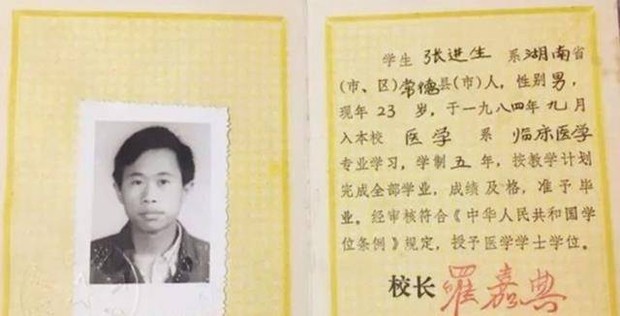 学生 张进生 系湖南省
(市、区)常德县(市)人，性别男，
现年 23 岁，于一九八四年九月
入本校 医学 系 临床医学
专业学习，学制五年，按教学计划
完成全部学业，成绩及格，准予毕
业。经审核符合《中华人民共和国学
位条例》规定，授予医学学士学位。
校长 罗嘉典